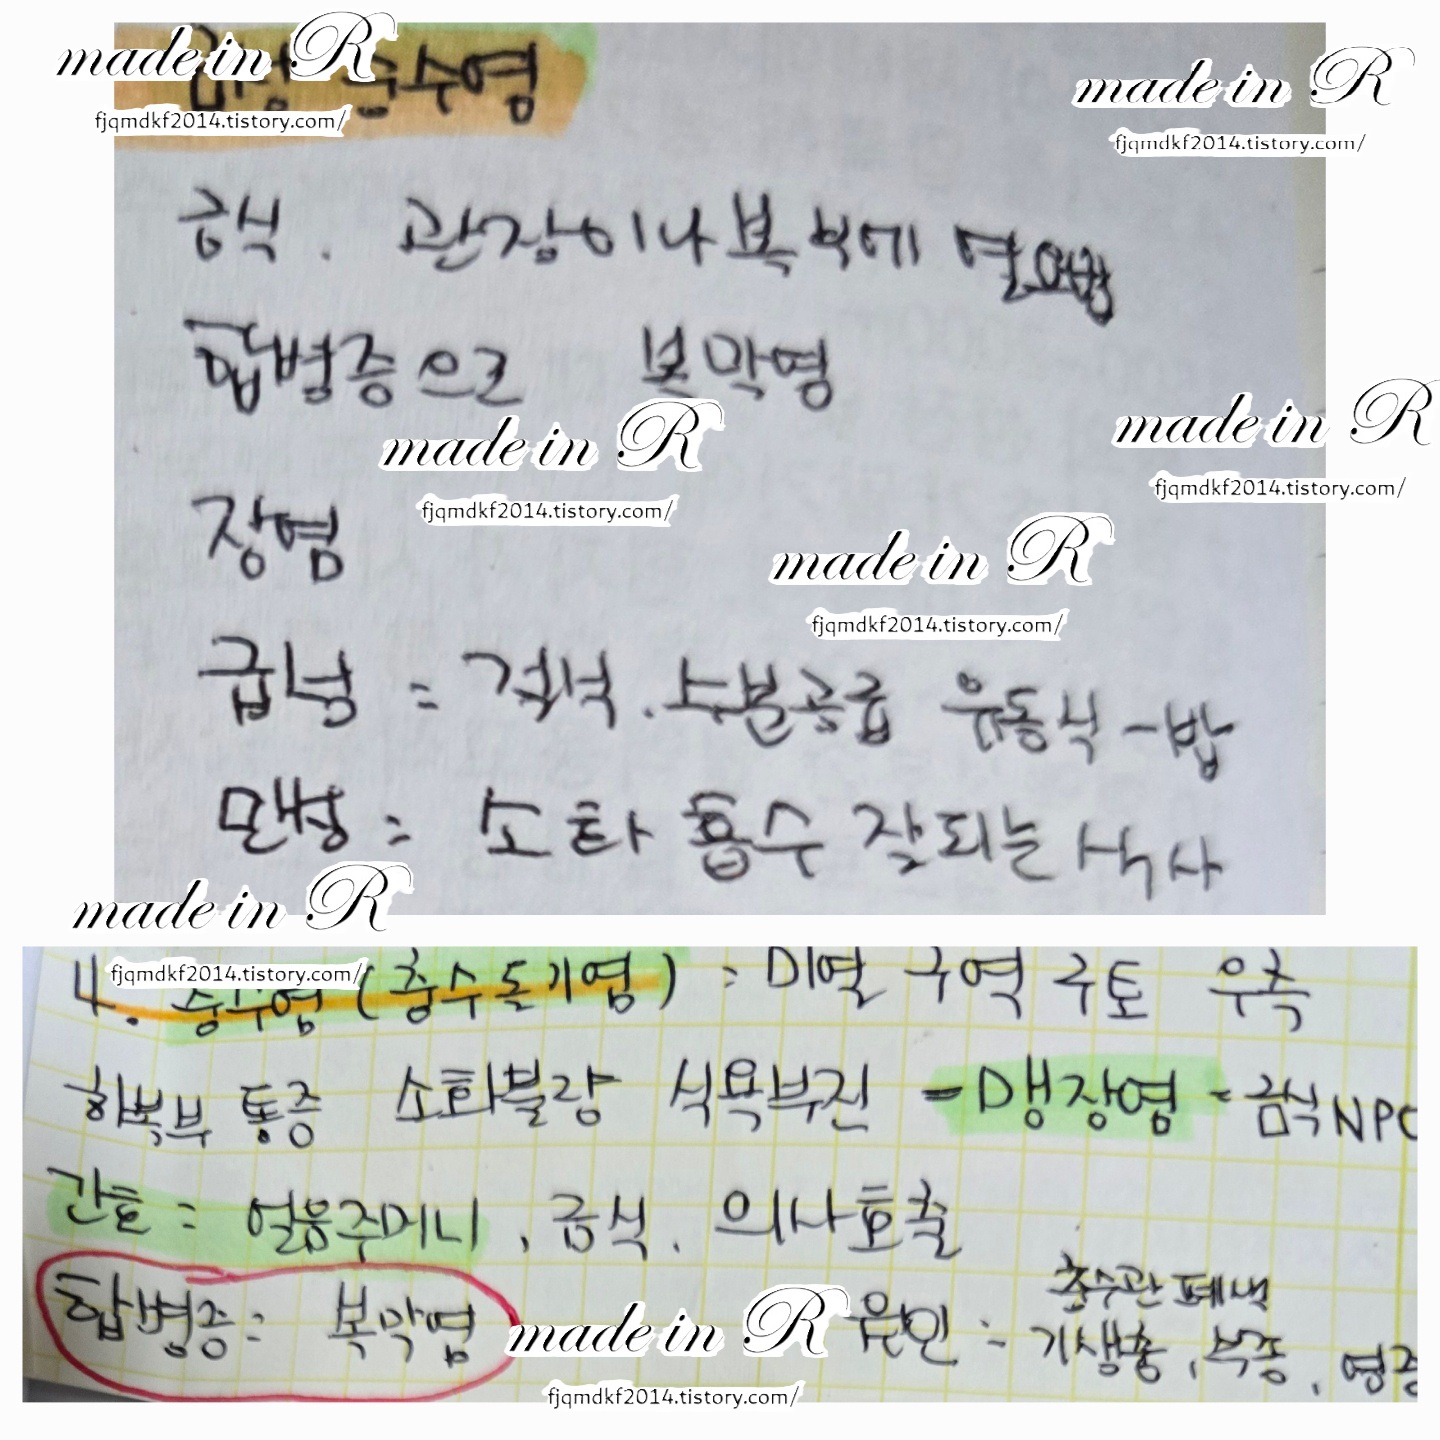 made in R
fjqmdkf2014.tistory.com/
수염
made in R
fjqmdkf2014.tistory.com/
금식. 관장이나 복부에
합병증으로 복막염
made in R
fjqmdkf2014.tistory.com/
made in R
fjqmdkf2014.tistory.com/
장염
made in R
fjqmdkf2014.tistory.com/
급성 = 수분공급 유동식 - 밥
만성 = 소화 흡수 잘되는 식사
made in R
fjqmdkf2014.tistory.com/
4. 충수염 (충수돌기염) : 미열 구역 구토 우측
하복부 통증 소화불량 식욕부진 - 맹장염 - 금식 NPO
간호 = 얼음주머니, 금식, 의사호출
합병증 = 복막염
made in R
fjqmdkf2014.tistory.com/
충수관 폐색
원인 = 기생충, 부종,